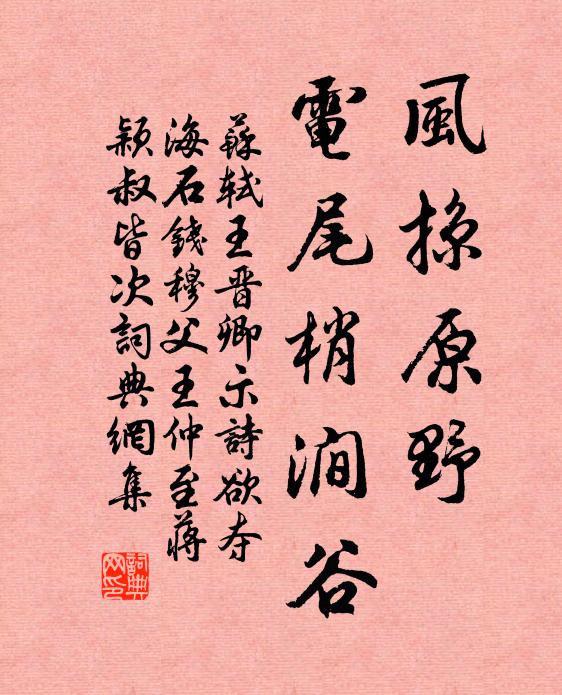 風掠原野
電尾梢澗谷
蘇軾王晉卿示詩欲奪
海石錢穆父王仲至蔣
穎叔皆次詞典網集
詞典网印